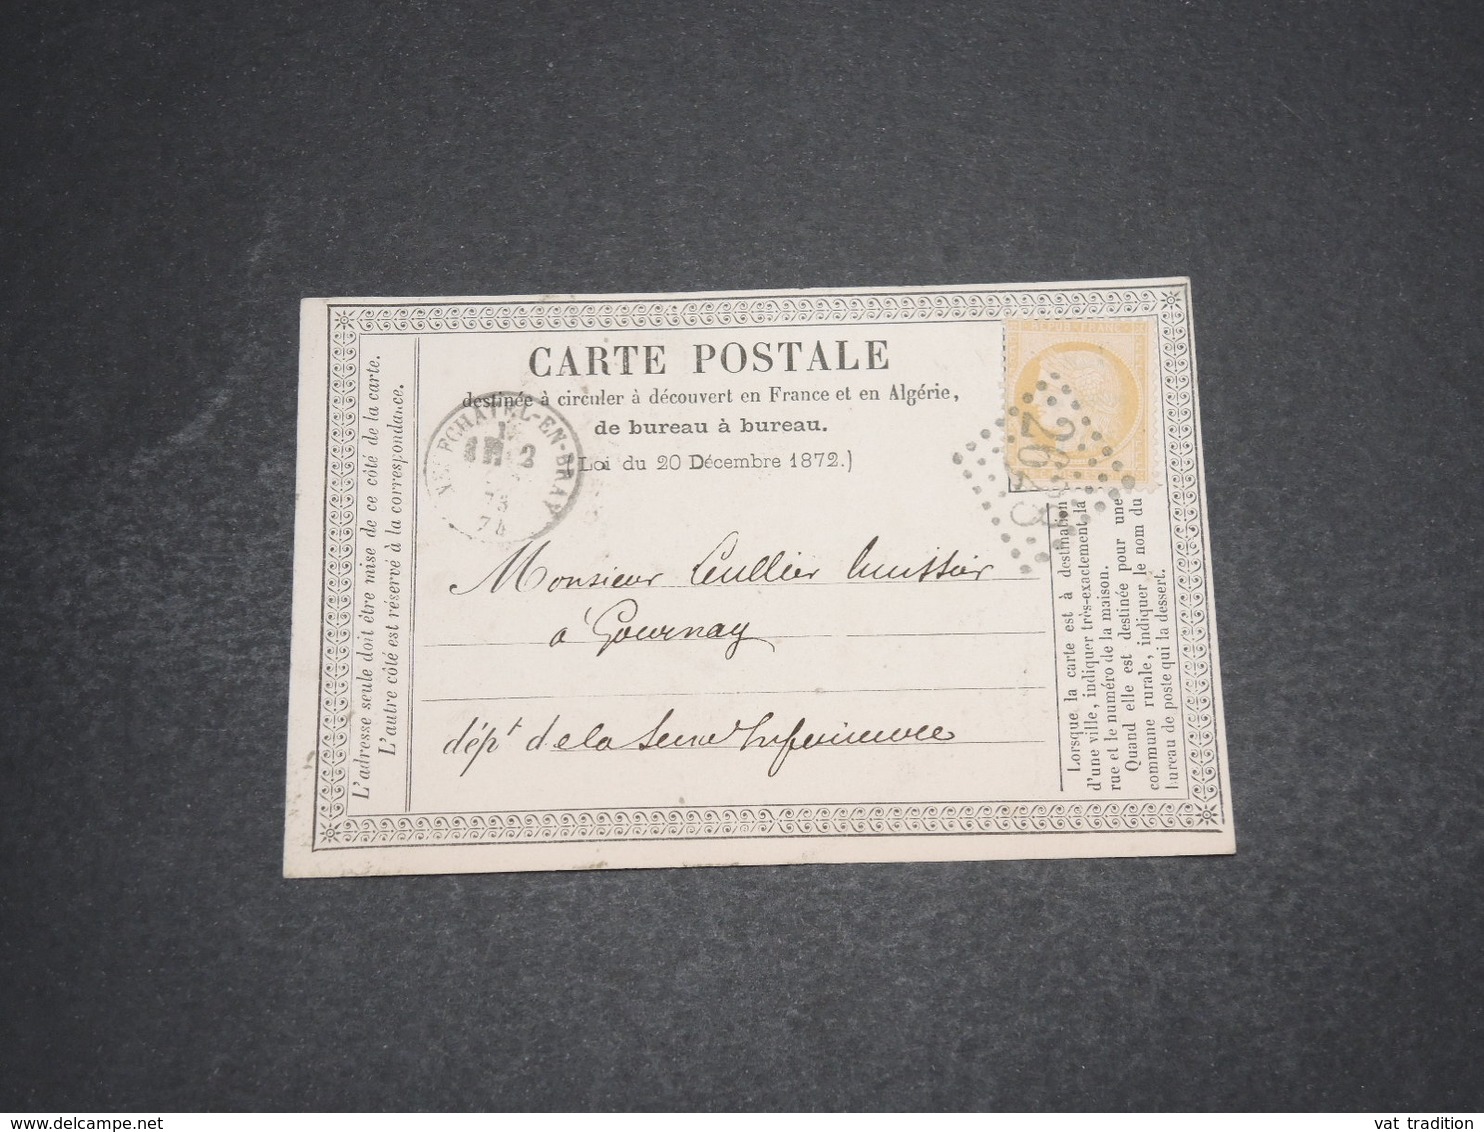 CARTE POSTALE
destinée à circuler à découvert en France et en Algérie,
de bureau à bureau.
(Loi du 20 Décembre 1872.)
L'adresse seule doit être mise de ce côté de la carte.
L'autre côté est réservé à la correspondance.
REPUB FRANC
EN-BRAY
Monsieur Leullier huissier
à Gournay
dépt de la Seine Inférieure
Lorsque la carte est à destination
d'une ville, indiquer très-exactement la
rue et le numéro de la maison.
Quand elle est destinée pour une
commune rurale, indiquer le nom du
bureau de poste qui la dessert.
delcampe.net
vat tradition